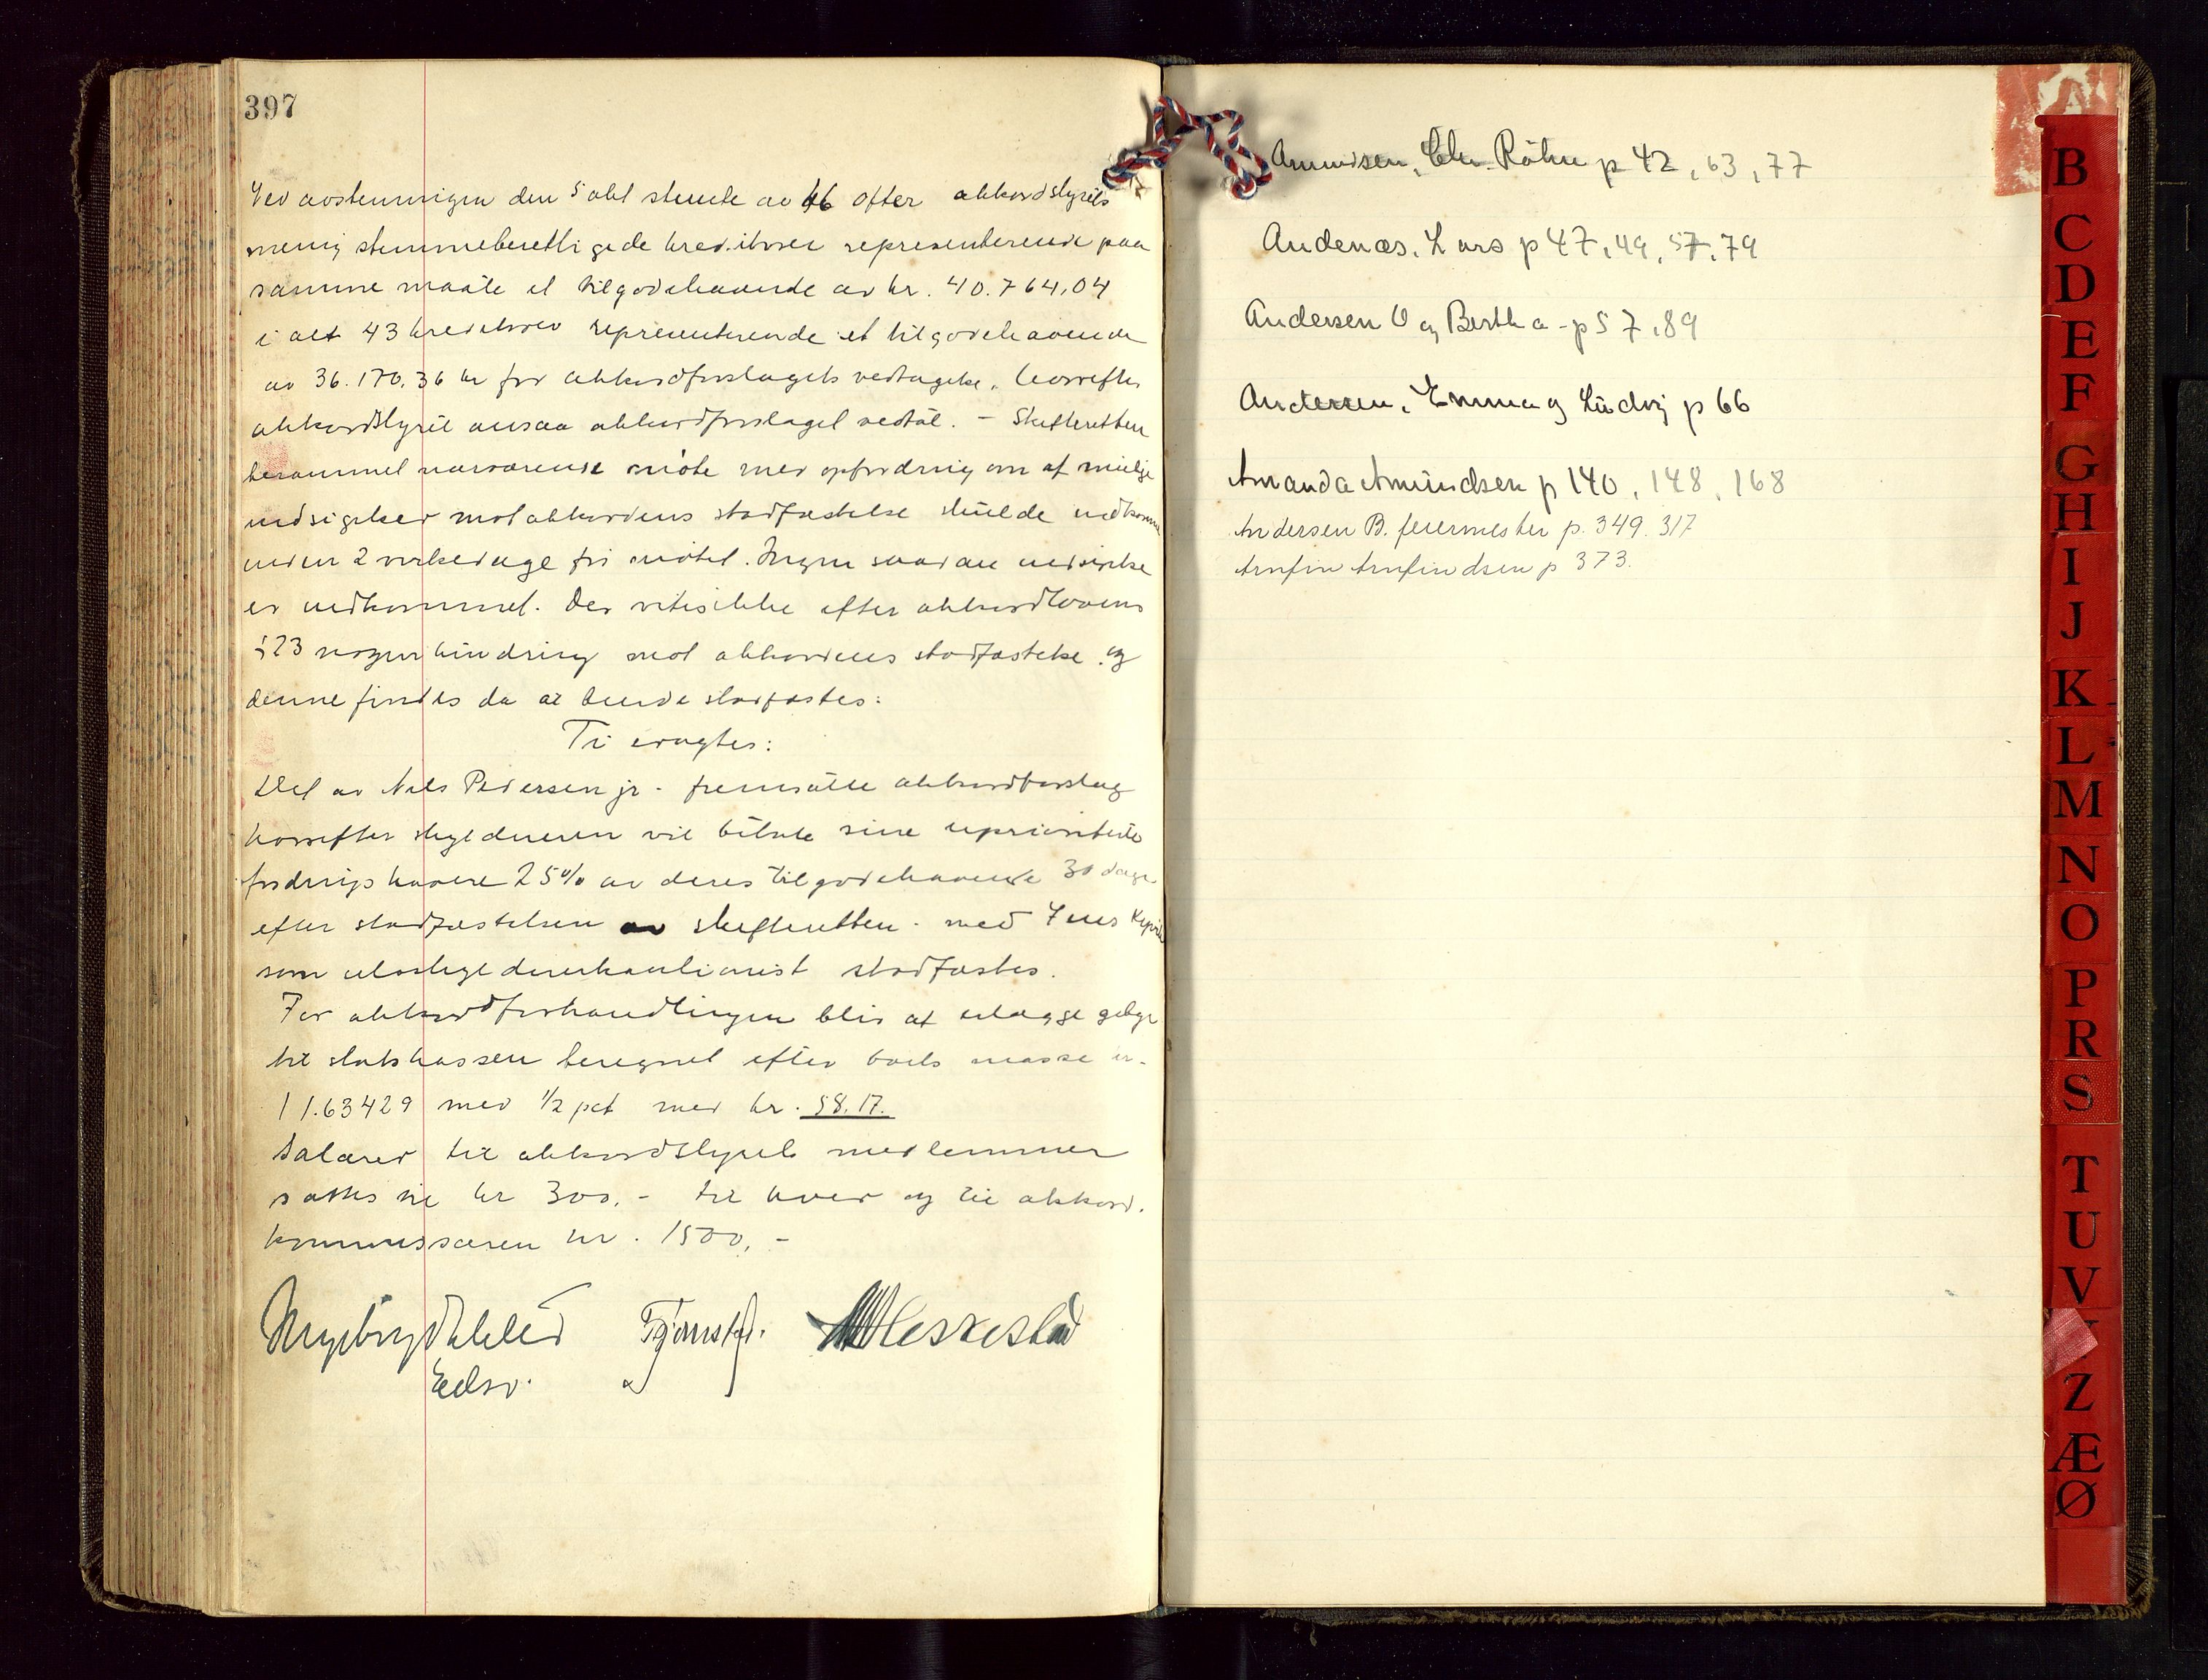 397
Ved avstemningen den 5 okt stemte av 46 efter akkordstyrets
mening stemmeberettigede kreditorer representerende paa
samme maate et tilgodehavende av kr. 40.764,04
i alt 43 kreditorer representerende et tilgodehavende
av 36.170,36 kr for akkordforslagets vedtagelse, hvorefter
akkordstyret ansaa akkordforslaget vedtat. - Skifteretten
berammet nærværende møte med opfordring om at mulige
indsigelser mot akkordens stadfæstelse skulde indkomme
inden 2 virkedage før møtet. Ingen saadan indsigelse
er indkommet. Der vites ikke efter akkordlovens
§23 nogen hindring mot akkordens stadfæstelse og
denne findes da at burde stadfæstes:
Ti eragtes:
Det av Nils Pedersen jr. fremsatte akkordforslag
hvorefter skyldneren vil betale sine uprioriterte
fordringshavere 25% av deres tilgodehavende 30 dage
efter stadfæstelsen av skifteretten. med Jens
som selvskyldnerkautionist stadfæstes.
For akkordforhandlingen blir at erlægge gebyr
til statskassen beregnet efter boets masse kr.
11.634 29 med 1/2 pct med kr. 58.17.
Salærer til akkordstyrets medlemmer
sættes til kr 300,- til hver og til akkord.
kommissæren kr. 1500,-
Tjømst.
Edsv.
Amundsen, Chr. Röhne p 42, 63, 77
Andenæs, Lars p 47, 49, 57, 79
Andersen O og Bertha - p 57, 89
Andersen, Emma og Ludvig p 66
Amanda Amundsen p 140, 148, 168
Andersen B. feiermester p. 349. 317
Arnfin Arnfindsen p 373.
A
B
C
D
E
F
G
H
I
J
K
L
M
N
O
P
R
S
T
U
V
Z
Æ
Ø